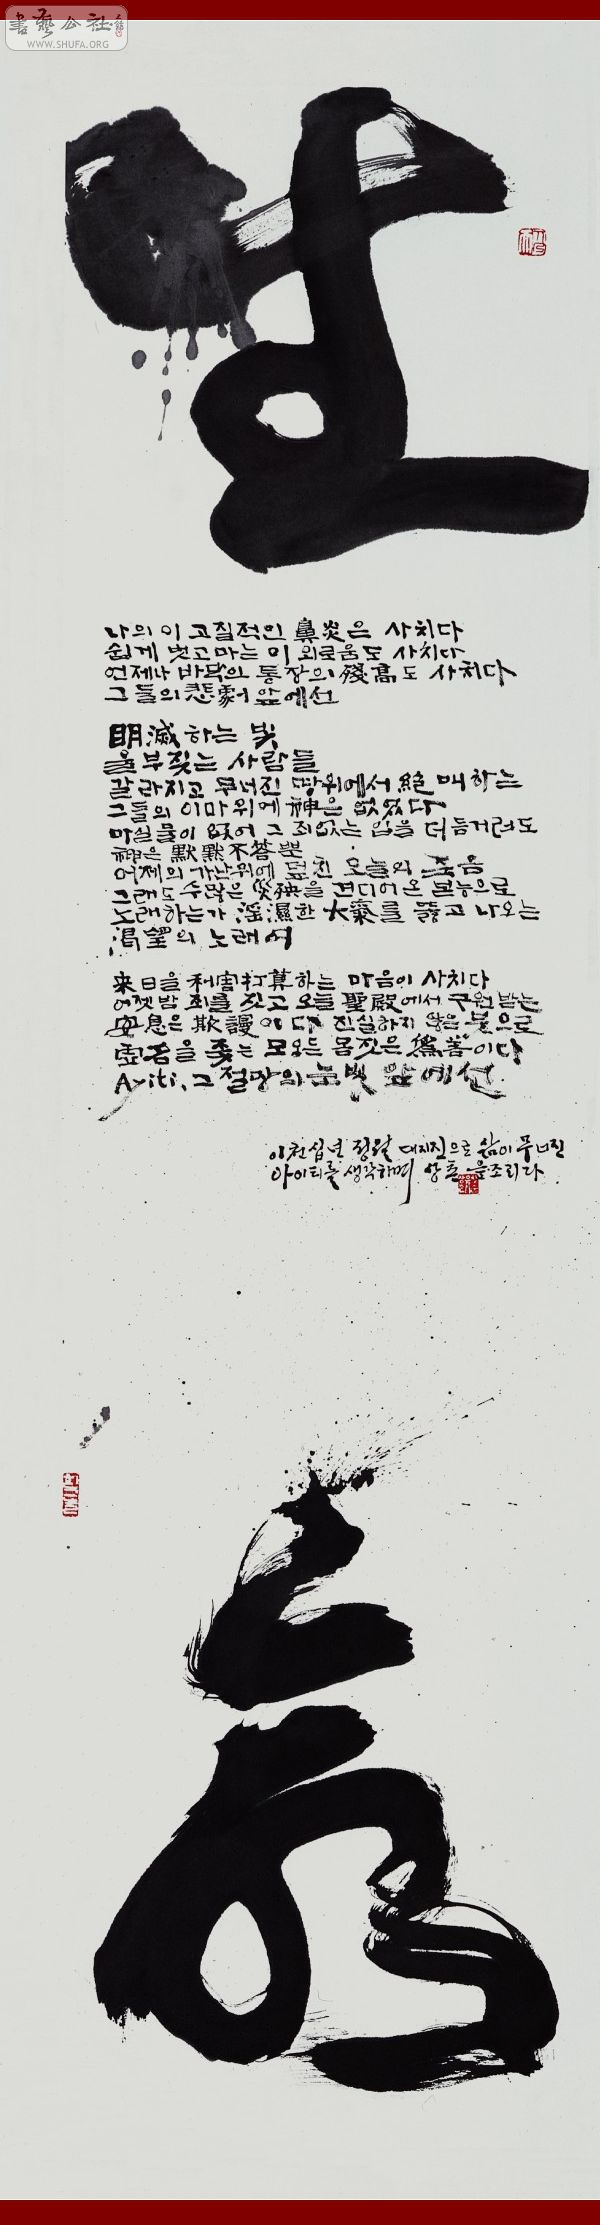 書藝公社
WWW.SHUFA.ORG
나의 이 고질적인 鼻炎은 사치다
쉽게 벗고마는 이 외로움도 사치다
언제나 바닥의 통장의 殘高도 사치다
그들의 悲劇 앞에선
明滅하는 빛
울부짖는 사람들
갈라지고 무너진 땅위에서 絶매하는
그들의 이마위에 神은 없었다
마실 물이 없어 그 죄없는 입을 더듬거려도
神은 默默不答뿐
어제의 가난위에 덮친 오늘의 죽음
그래도 수많은 災殃을 견디어온 본능으로
노래하는가 淫濕한 大氣를 뚫고 나오는
渴望의 노래여
来日을 利害打算하는 마음이 사치다
어젯밤 죄를 짓고 오늘 聖殿에서 구원받는
安息은 欺謾이다 진실하지 않은 붓으로
虛名을 좇는 모오든 몸짓은 僞善이다
Ayiti, 그 절망의 눈빛 앞에선
이천십년 정월 대지진으로 삶이 무너진
아이티를 생각하며 읊조리다